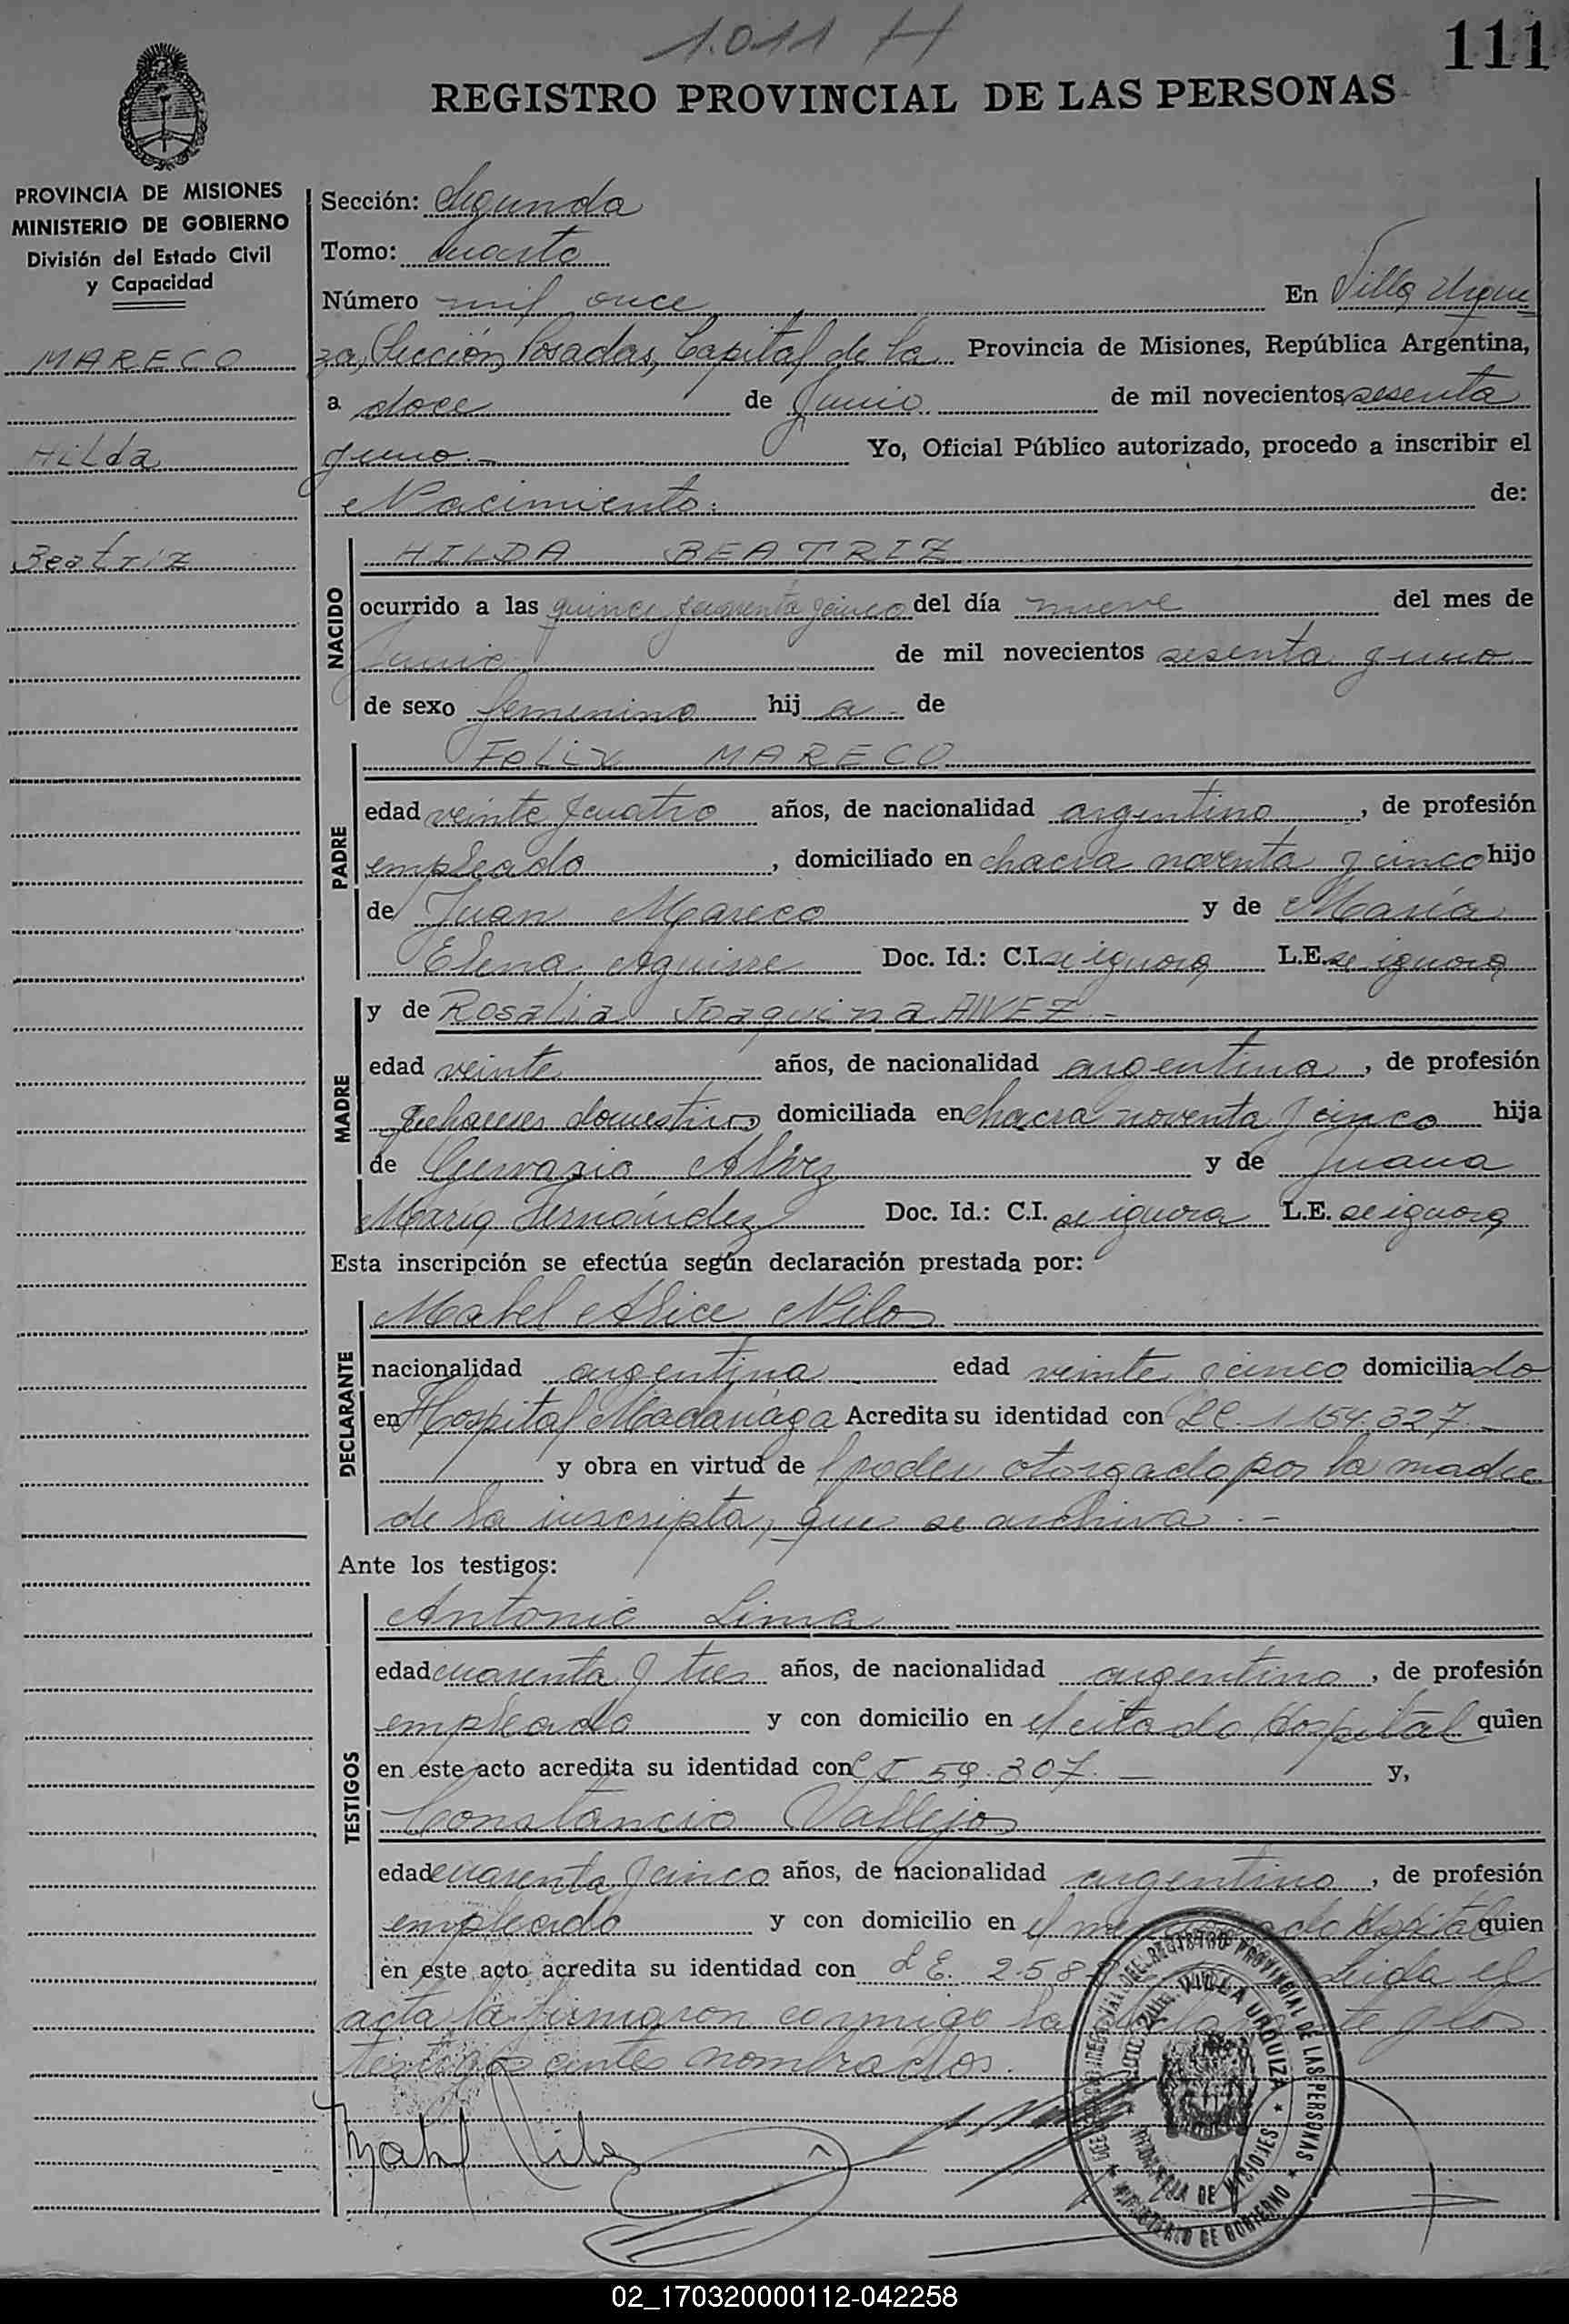 1.011 H
111
REGISTRO PROVINCIAL DE LAS PERSONAS
PROVINCIA DE MISIONES
MINISTERIO DE GOBIERNO
División del Estado Civil
y Capacidad
MARECO
Hilda
Beatriz
Sección: Segunda
Tomo: Cuarto
Número mil once En Villa Urqui
za, Sección Posadas, Capital de la Provincia de Misiones, República Argentina,
a doce de Junio de mil novecientos sesenta
y uno.- Yo, Oficial Público autorizado, procedo a inscribir el
Nacimiento: de:
NACIDO
HILDA BEATRIZ
ocurrido a las quince y cuarenta y cinco del día nueve del mes de
Junio de mil novecientos sesenta y uno
de sexo femenino hij a de
PADRE
Felix MARECO
edad veinte y cuatro años, de nacionalidad argentino, de profesión
empleado, domiciliado en chacra noventa y cinco hijo
de Juan Mareco y de María
Elena Aguirre Doc. Id.: C.I. se ignora L.E. se ignora
MADRE
y de Rosalia Joaquina ALVEZ -
edad veinte años, de nacionalidad argentina, de profesión
quehaceres domesticos domiciliada en chacra noventa y cinco hija
de Gervasio Alvez y de Juana
María Fernández Doc. Id.: C.I. se ignora L.E. se ignora
Esta inscripción se efectúa según declaración prestada por:
DECLARANTE
Mabel Alice Nilo
nacionalidad argentina edad veinte y cinco domicilia do
en Hospital Madariaga Acredita su identidad con LC. 1.154.327.-
y obra en virtud de l poder otorgado por la madre
de la inscripta, que se archiva.-
Ante los testigos:
TESTIGOS
Antonio Lima
edad cuarenta y tres años, de nacionalidad argentino, de profesión
empleado y con domicilio en el citado Hospital quien
en este acto acredita su identidad con C I 59.307.- y,
Constancio Vallejos
edad cuarenta y cinco años, de nacionalidad argentino, de profesión
empleado y con domicilio en el Hospital quien
en este acto acredita su identidad con L E. 2.58 Leida el
acta la firmaron conmigo la y los
testigos antes nombrados.
Mabel Nilo
REGISTRO PROVINCIAL DE LAS PERSONAS
VILLA URQUIZA
PROVINCIA DE MISIONES
MINISTERIO DE GOBIERNO
02_170320000112-042258